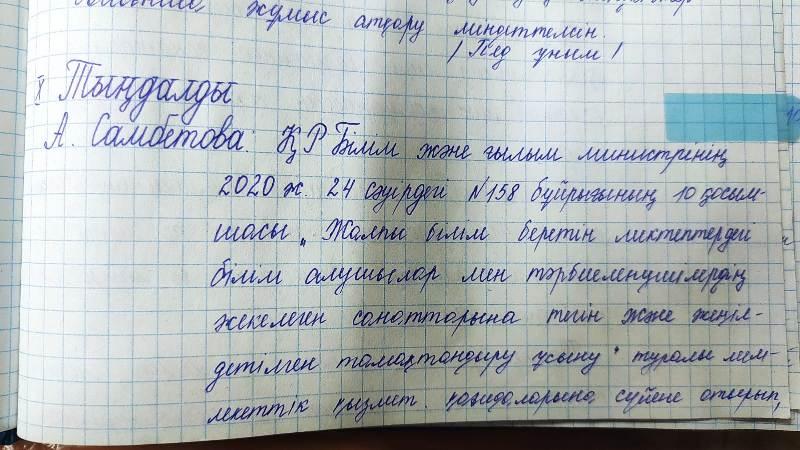 жұмыс атқару міндеттелсін.
/ Пед ұйым /
X Тыңдалды
А. Самбетова: ҚР Білім және ғылым министрінің
2020 ж. 24 сәуірдегі №158 бұйрығының 10 қосым-
шасы „ Жалпы білім беретін мектептердегі
білім алушылар мен тәрбиеленушілердің
жекелеген санаттарына тегін және жеңіл-
детілген тамақтандыру ұсыну " туралы мем-
лекеттік қызмет қағидаларына сүйене отырып,